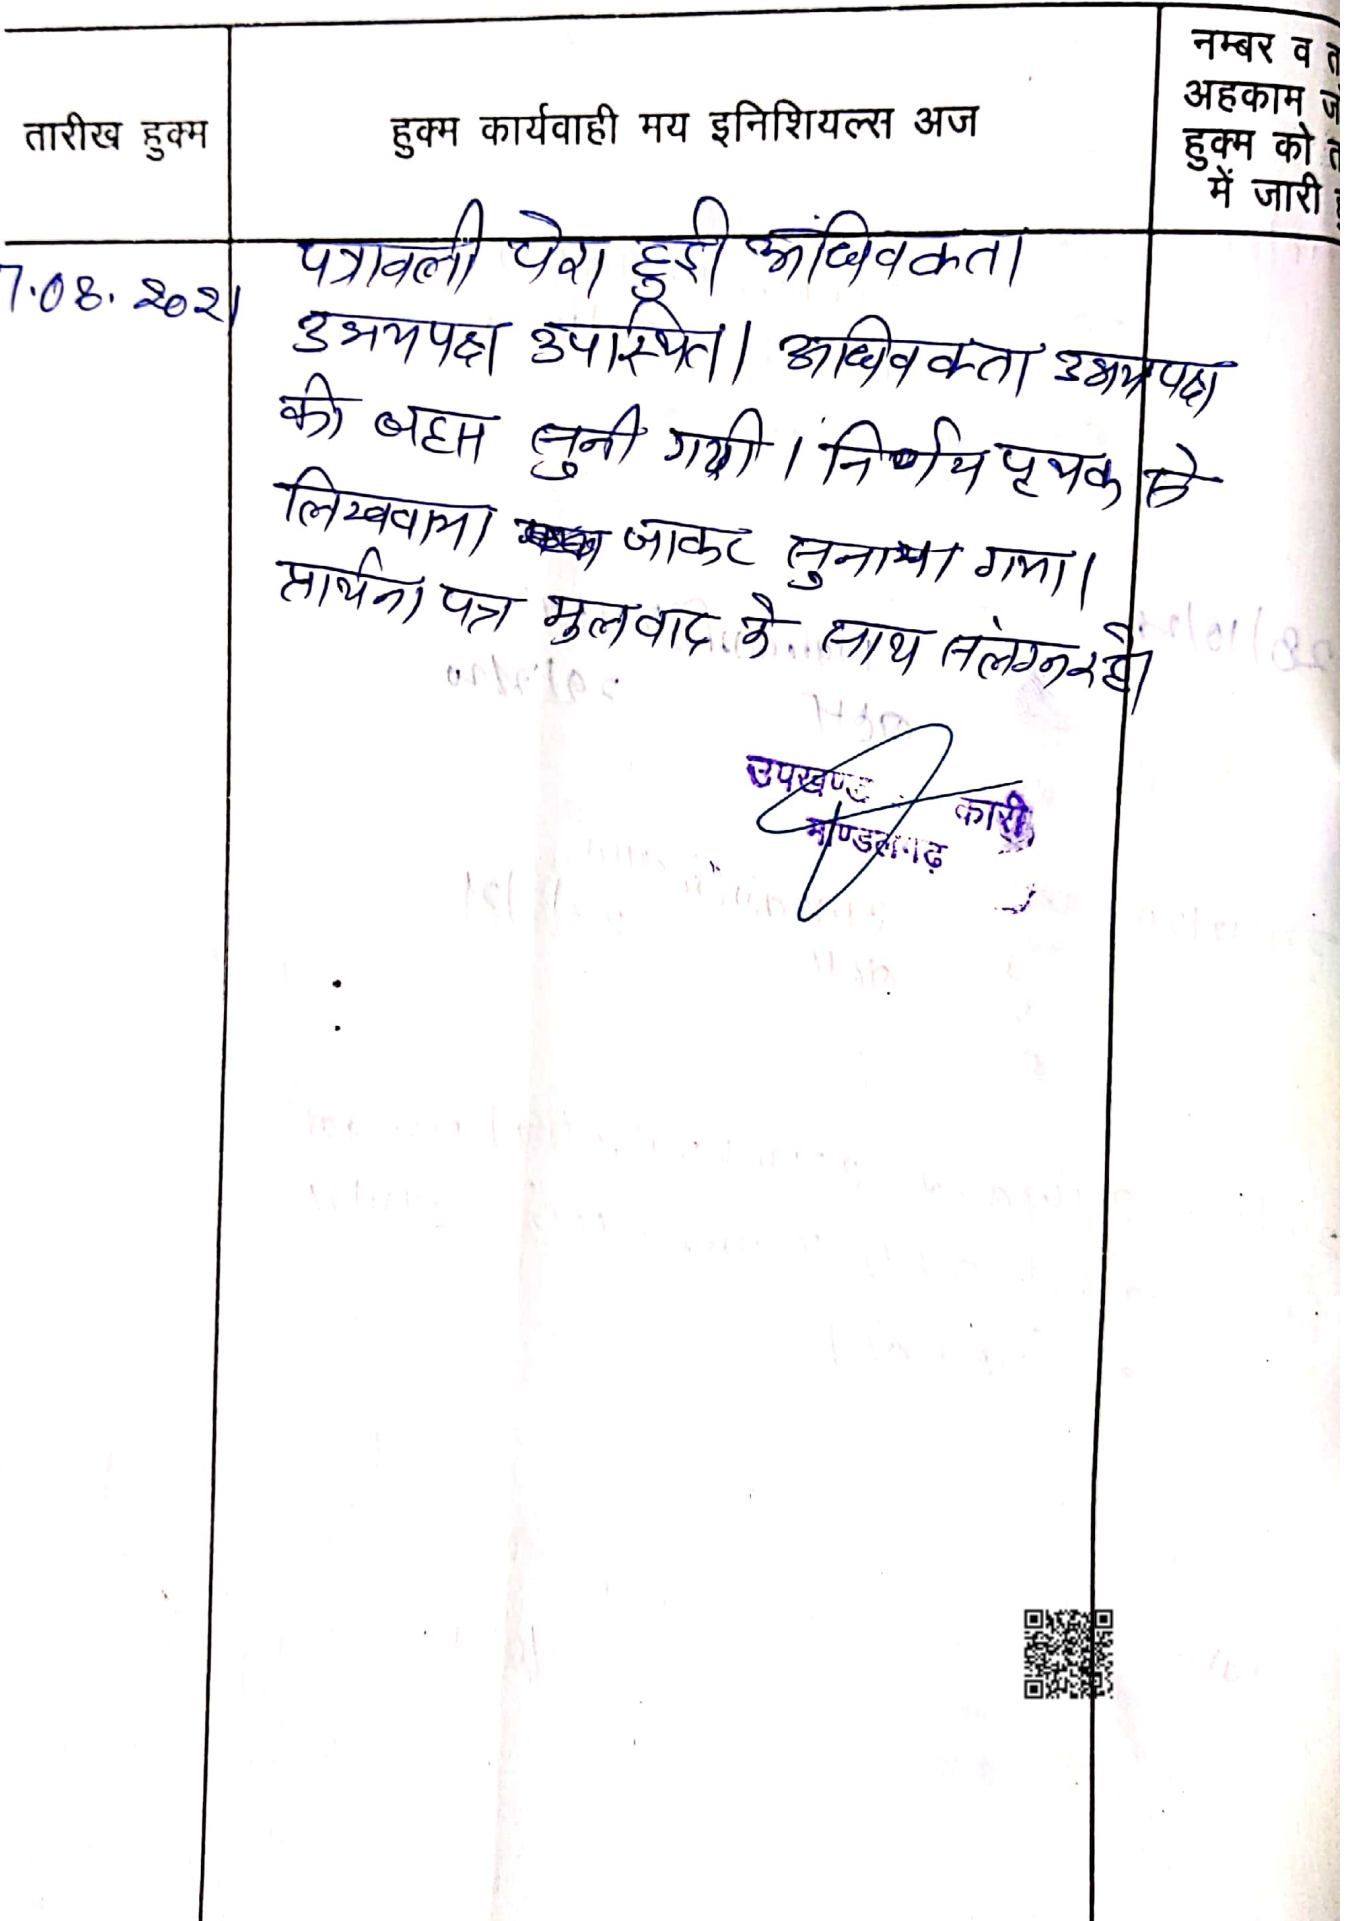 तारीख हुक्म
हुक्म कार्यवाही मय इनिशियल्स अज
नम्बर व
अहकाम
हुक्म को
में जारी
7.08.2021
पत्रावली पेश हुई अधिवक्ता
उभयपक्ष उपस्थित। अधिवक्ता उभयपक्ष
की बहस सुनी गयी। निर्णय पृथक से
लिखवाया जाकर सुनाया गया।
प्रार्थना पत्र मुलवाद के साथ संलग्न रहे।
उपखण्ड कारी
माण्डलगढ़